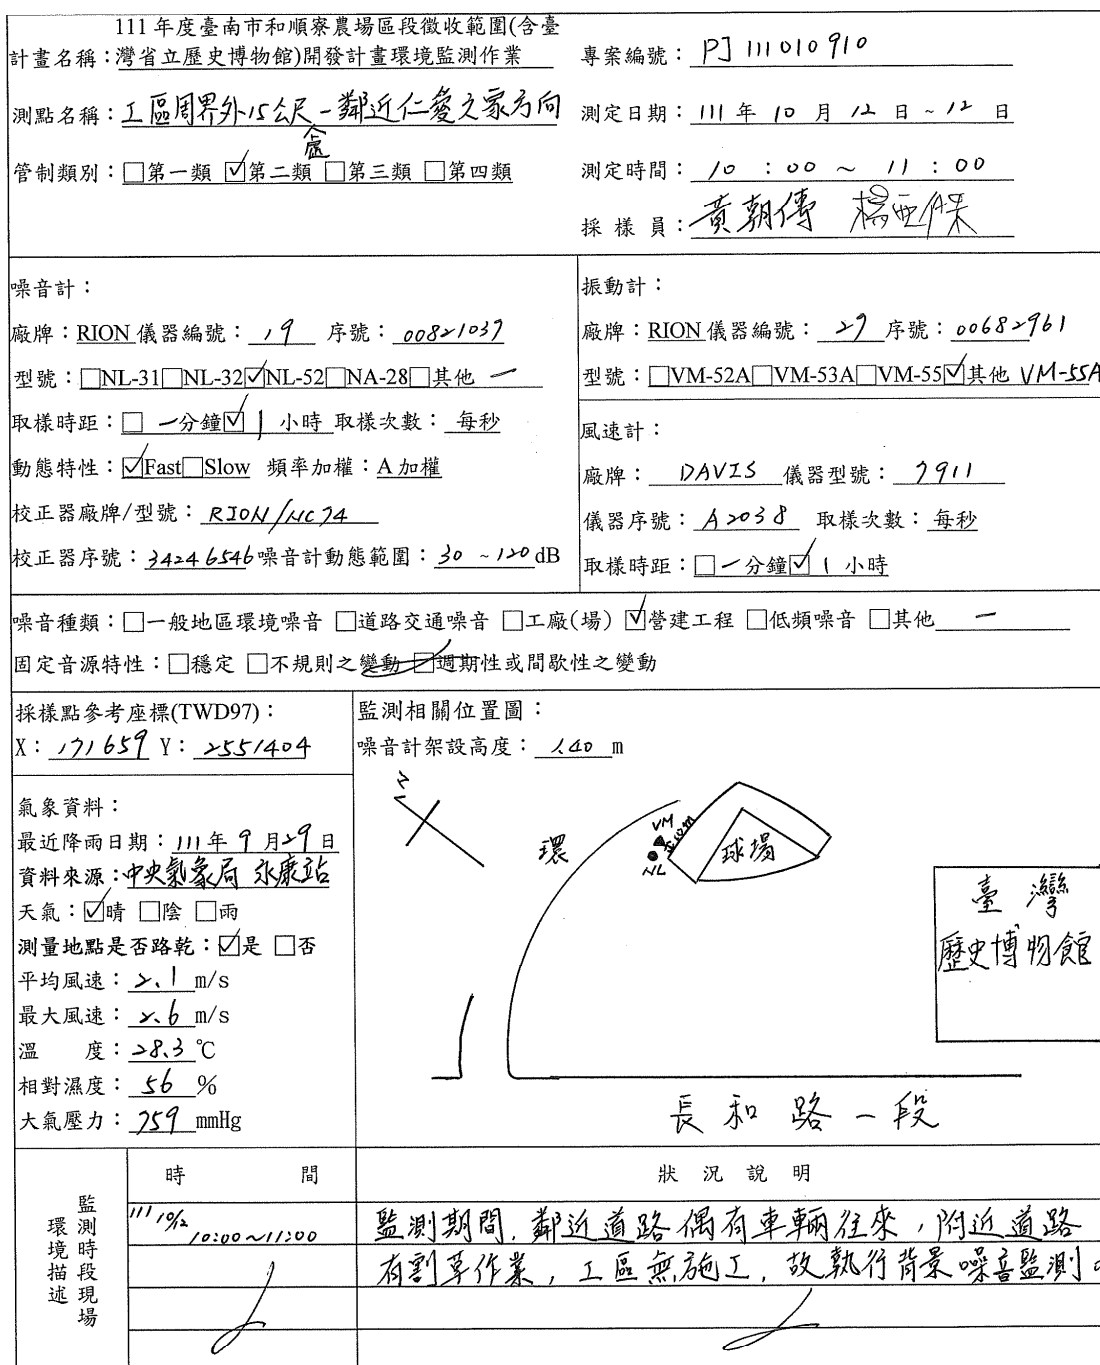 111 年度臺南市和順寮農場區段徵收範圍(含臺
計畫名稱：灣省立歷史博物館)開發計畫環境監測作業
專案編號：PJ 111010910
測點名稱：工區周界外15公尺處-鄰近仁愛之家方向
測定日期：111 年 10 月 12 日 ~ 12 日
管制類別：□第一類 ☑第二類 □第三類 □第四類
測定時間：10 ：00 ~ 11：00
採 樣 員：黃朝傳
噪音計：
廠牌：RION 儀器編號：19 序號：00821037
型號：□NL-31□NL-32☑NL-52□NA-28□其他 一
取樣時距：□ 一分鐘☑ 1 小時 取樣次數：每秒
動態特性：☑Fast□Slow 頻率加權：A 加權
校正器廠牌/型號：RION/NC74
校正器序號：34246546 噪音計動態範圍：30 ~120 dB
振動計：
廠牌：RION 儀器編號：27 序號：00682961
型號：□VM-52A□VM-53A□VM-55☑其他 VM-55A
風速計：
廠牌：DAVIS 儀器型號：7911
儀器序號：A2038 取樣次數：每秒
取樣時距：□一分鐘☑ 1 小時
噪音種類：□一般地區環境噪音 □道路交通噪音 □工廠(場) ☑營建工程 □低頻噪音 □其他 一
固定音源特性：□穩定 □不規則之變動 □週期性或間歇性之變動
採樣點參考座標(TWD97)：
X：171659 Y：2551404
氣象資料：
最近降雨日期：111年 9 月 29 日
資料來源：中央氣象局 永康站
天氣：☑晴 □陰 □雨
測量地點是否路乾：☑是 □否
平均風速：2.1 m/s
最大風速：2.6 m/s
溫　　度：28.3 ℃
相對濕度：56 %
大氣壓力：759 mmHg
監測相關位置圖：
噪音計架設高度：1.40 m
N
環
VM
NL
球場
臺 灣
歷史博物館
長 和 路 一 段
監測時段現場環境描述
時　　間
狀 況 說 明
111 10/12
10:00~11:00
監測期間，鄰近道路偶有車輛往來，附近道路
有割草作業，工區無施工，故執行背景噪音監測。